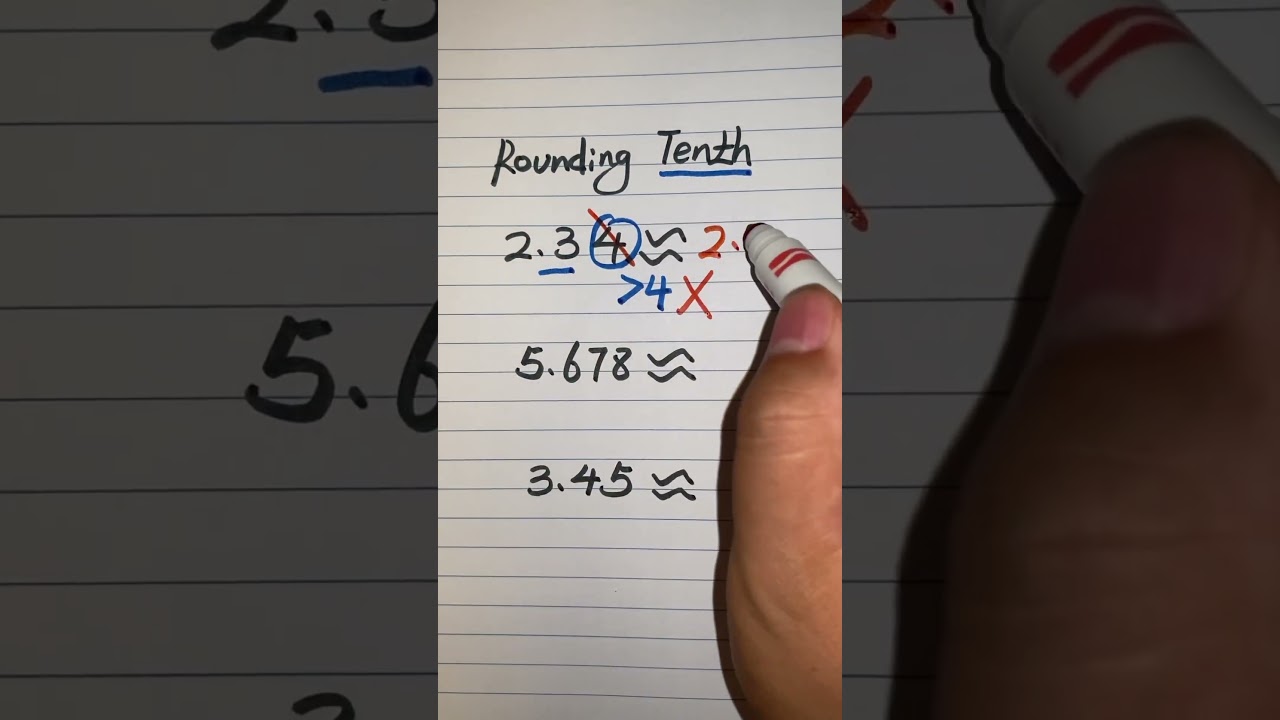 Rounding Tenth
2.34 ≈ 2.
>4 X
5.678 ≈
3.45 ≈